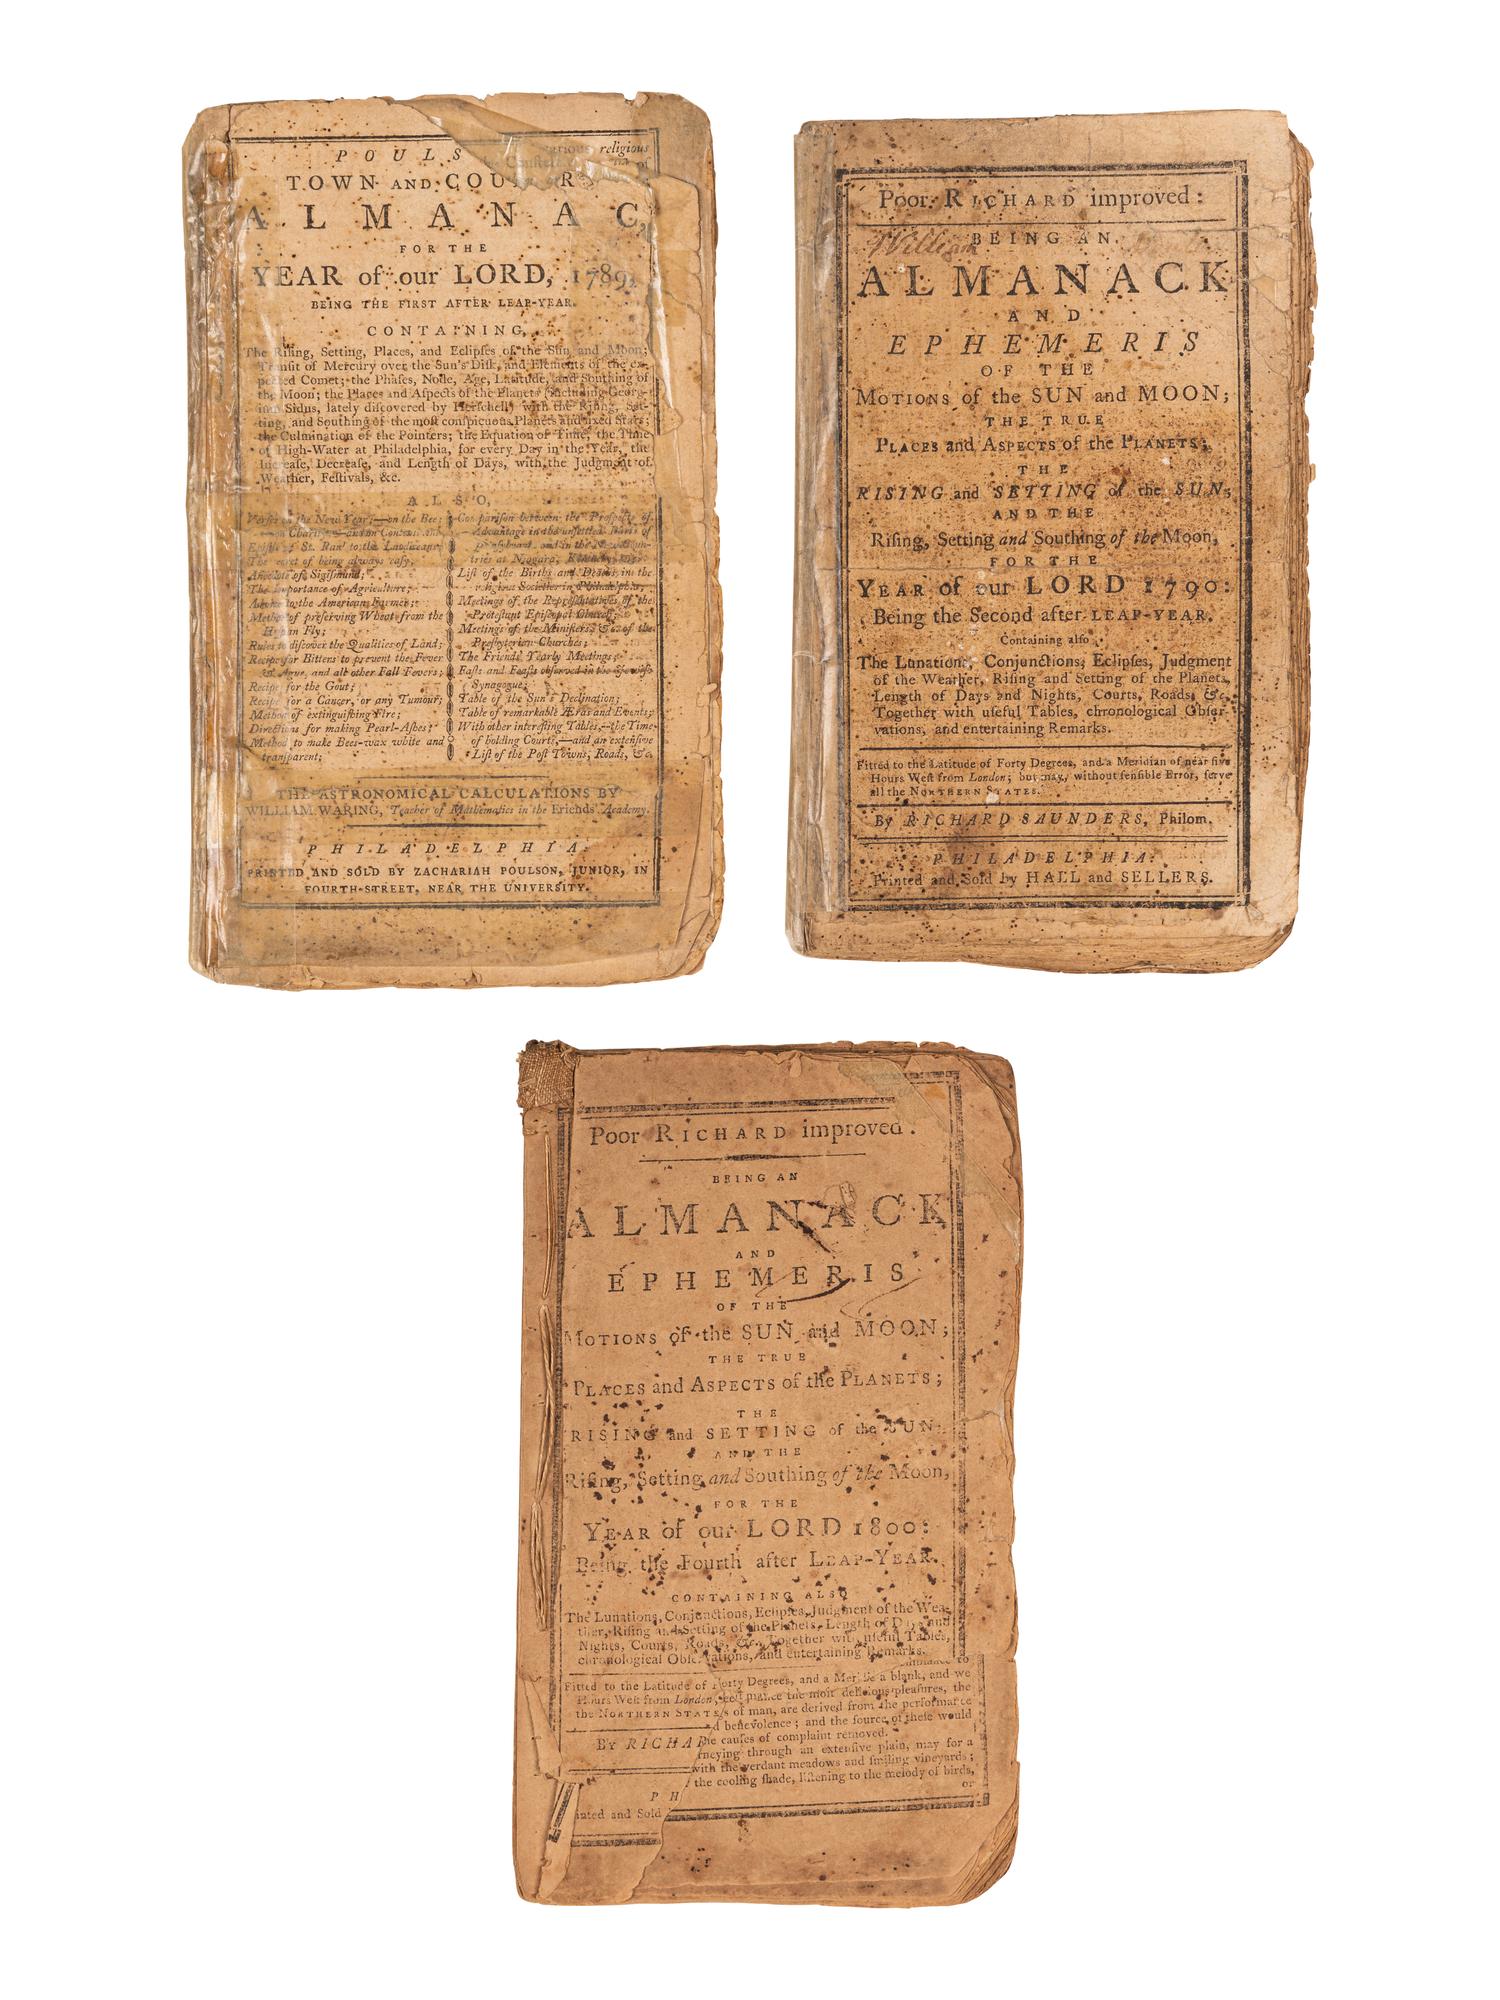 POULS
TOWN AND COU R
ALMANAC,
FOR THE
YEAR of our LORD, 1789,
BEING THE FIRST AFTER LEAP-YEAR.
CONTAINING,
The Riſing, Setting, Places, and Eclipſes of the Sun and Moon;
Tranſit of Mercury over the Sun's Diſk, and Elements of the ex-
pected Comet; the Phaſes, Node, Age, Latitude, and Southing of
the Moon; the Places and Aſpects of the Planets (including Georg-
ium Sidus, lately diſcovered by Herſchell) with the Riſing, Set-
ting, and Southing of the moſt conſpicuous Planets and fixed Stars;
the Culmination of the Pointers; the Equation of Time, the Time
of High-Water at Philadelphia, for every Day in the Year, the
Increaſe, Decreaſe, and Length of Days, with the Judgment of
Weather, Feſtivals, &c.
ALSO,
Verſes on the New Year;—on the Bee;
—on Charity;—and on Content and
Epiſtle of St. to the Landſcape;
The ecret of being always eaſy;
Anecdote of Sigiſmund;
The Importance of Agriculture;
Advice to the American Farmer;
Method of preſerving Wheat from the
Heſſian Fly;
Rules to diſcover the Qualities of Land;
Recipe for Bitters to prevent the Fever
& Ague, and all other Fall Fevers;
Recipe for the Gout;
Recipe for a Cancer, or any Tumour;
Method of extinguiſhing Fire;
Directions for making Pearl-Aſhes;
Method to make Bees-wax white and
tranſparent;
Compariſon between the Proſpects of
Advantage in the unſettled Parts of
Pennſylvani. and in the New Coun-
tries at Niagara, Kentucky, &c.
Liſt of the Births and Deaths in the
religious Societies in Philadelphia;
Meetings of the Repreſentatives of the
Proteſtant Epiſcopal Church;
Meetings of the Miniſters, &c. of the
Preſbyterian Churches;
The Friends' Yearly Meetings;
Faſts and Feaſts obſerved in the Jewiſh
Synagogue;
Table of the Sun's Declination;
Table of remarkable Æras and Events;
With other intereſting Tables,—the Time
of holding Courts,—and an extenſive
Liſt of the Poſt Towns, Roads, &c.
THE ASTRONOMICAL CALCULATIONS BY
WILLIAM WARING, Teacher of Mathematics in the Friends' Academy.
PHILADELPHIA:
PRINTED AND SOLD BY ZACHARIAH POULSON, JUNIOR, IN
FOURTH-STREET, NEAR THE UNIVERSITY.
religious
of
Poor RICHARD improved:
William
BEING AN
ALMANACK
AND
EPHEMERIS
OF THE
MOTIONS of the SUN and MOON;
THE TRUE
PLACES and ASPECTS of the PLANETS;
THE
RISING and SETTING of the SUN;
AND THE
Riſing, Setting and Southing of the Moon,
FOR THE
YEAR of our LORD 1790:
Being the Second after LEAP-YEAR.
Containing alſo
The Lunations, Conjunctions, Eclipſes, Judgment
of the Weather, Riſing and Setting of the Planets,
Length of Days and Nights, Courts, Roads, &c.
Together with uſeful Tables, chronological Obſer-
vations, and entertaining Remarks.
Fitted to the Latitude of Forty Degrees, and a Meridian of near five
Hours Weſt from London; but may, without ſenſible Error, ſerve
all the NORTHERN STATES.
By RICHARD SAUNDERS, Philom.
PHILADELPHIA:
Printed and Sold by HALL and SELLERS.
Poor RICHARD improved:
BEING AN
ALMANACK
AND
EPHEMERIS
OF THE
MOTIONS of the SUN and MOON;
THE TRUE
PLACES and ASPECTS of the PLANETS;
THE
RISING and SETTING of the SUN:
AND THE
Riſing, Setting and Southing of the Moon,
FOR THE
YEAR of our LORD 1800:
Being the Fourth after LEAP-YEAR.
CONTAINING ALSO
The Lunations, Conjunctions, Eclipſes, Judgment of the Wea-
ther, Riſing and Setting of the Planets, Length of Days and
Nights, Courts, Roads, &c. Together with uſeful Tables,
chronological Obſervations, and entertaining Remarks.
to
Fitted to the Latitude of Forty Degrees, and a Mer be a blank, and we
Hours Weſt from London; the moſt delicious pleaſures, the
the NORTHERN STATE s of man, are derived from the performance
d benevolence; and the ſource of theſe would
BY RICHAR he cauſes of complaint removed.
rneying through an extenſive plain, may for a
with the verdant meadows and ſmiling vineyards;
the cooling ſhade, liſtening to the melody of birds,
or
PH
inted and Sold